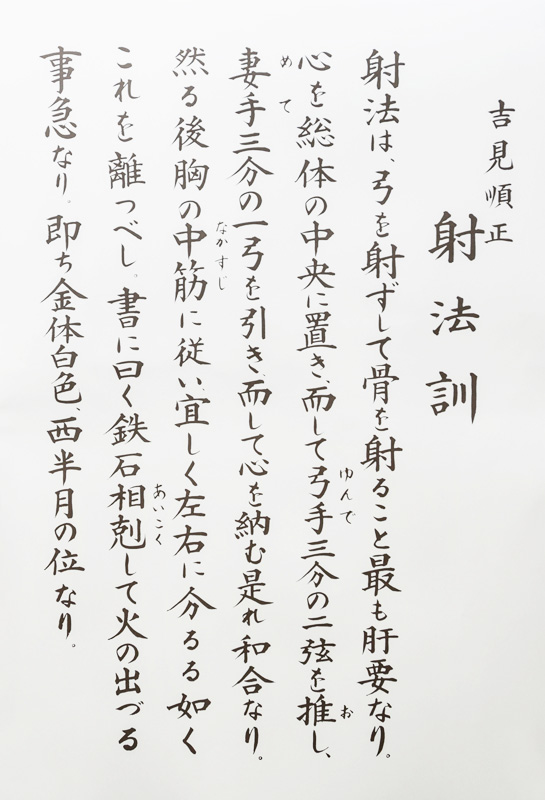 吉見順正
射法訓
射法は、弓を射ずして骨を射ること最も肝要なり。
心を総体の中央に置き、而して弓手三分の二弦を推し、
妻手三分の一弓を引き、而して心を納む是れ和合なり。
然る後胸の中筋に従い宜しく左右に分るる如く
これを離つべし。書に曰く鉄石相剋して火の出づる
事急なり。即ち金体白色、西半月の位なり。
ゆんで
お
めて
なかすじ
あいこく